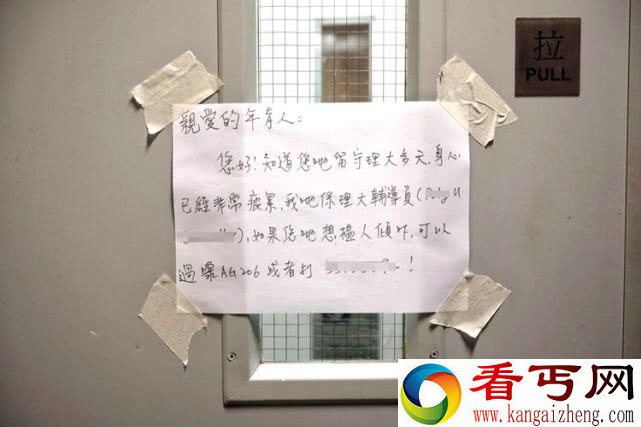 拉
PULL
親愛的年青人:
您好!知道您哋留守理大多天,身心
已經非常疲累,我哋係理大輔導員(Poly U
),如果您哋想搵人傾吓,可以
過嚟AG206或者打 !
看丐网
www.kangaizheng.com